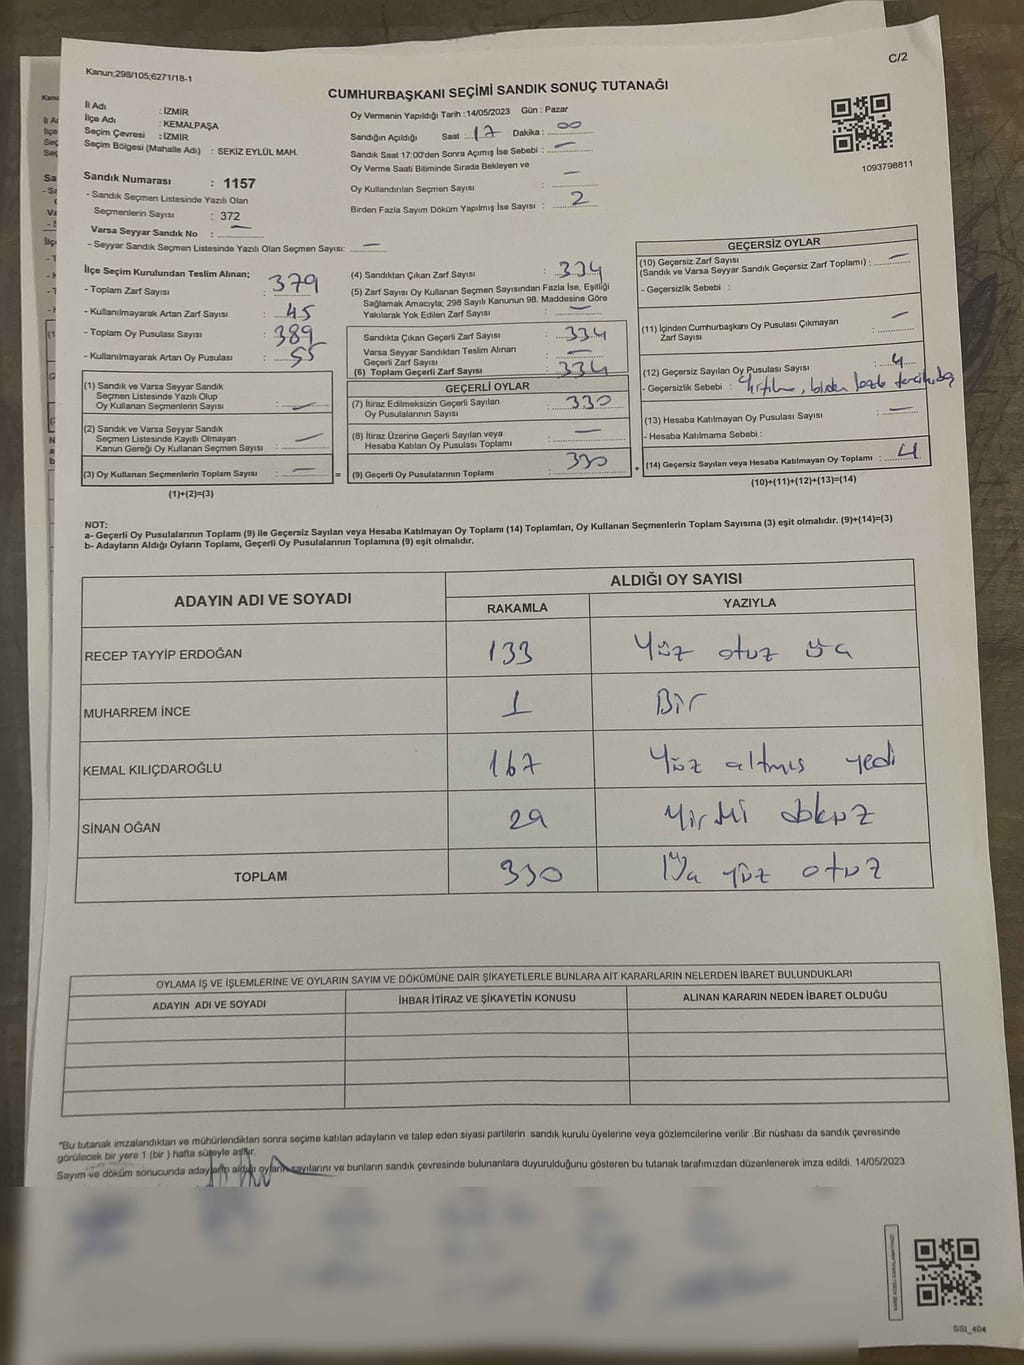 C/2
Kanun;298/105;6271/18-1
CUMHURBAŞKANI SEÇİMİ SANDIK SONUÇ TUTANAĞI
1093798811
İl Adı : İZMİR
İlçe Adı : KEMALPAŞA
Seçim Çevresi : İZMİR
Seçim Bölgesi (Mahalle Adı) : SEKİZ EYLÜL MAH.
Sandık Numarası : 1157
- Sandık Seçmen Listesinde Yazılı Olan
Seçmenlerin Sayısı : 372
Varsa Seyyar Sandık No : —
- Seyyar Sandık Seçmen Listesinde Yazılı Olan Seçmen Sayısı: —
Oy Vermenin Yapıldığı Tarih :14/05/2023 Gün : Pazar
Sandığın Açıldığı Saat : 17 Dakika : 00
Sandık Saat 17:00'den Sonra Açımış İse Sebebi : —
Oy Verme Saati Bitiminde Sırada Bekleyen ve
Oy Kullandırılan Seçmen Sayısı : —
Birden Fazla Sayım Döküm Yapılmış İse Sayısı : 2
İlçe Seçim Kurulundan Teslim Alınan;
- Toplam Zarf Sayısı : 379
- Kullanılmayarak Artan Zarf Sayısı : 45
- Toplam Oy Pusulası Sayısı : 389
- Kullanılmayarak Artan Oy Pusulası : 55
(1) Sandık ve Varsa Seyyar Sandık
Seçmen Listesinde Yazılı Olup
Oy Kullanan Seçmenlerin Sayısı : —
(2) Sandık ve Varsa Seyyar Sandık
Seçmen Listesinde Kayıtlı Olmayan
Kanun Gereği Oy Kullanan Seçmen Sayısı : —
(3) Oy Kullanan Seçmenlerin Toplam Sayısı : —
(1)+(2)=(3)
=
(4) Sandıktan Çıkan Zarf Sayısı : 334
(5) Zarf Sayısı Oy Kullanan Seçmen Sayısından Fazla İse, Eşitliği
Sağlamak Amacıyla; 298 Sayılı Kanunun 98. Maddesine Göre
Yakılarak Yok Edilen Zarf Sayısı : —
Sandıkta Çıkan Geçerli Zarf Sayısı : 334
Varsa Seyyar Sandıktan Teslim Alınan
Geçerli Zarf Sayısı : —
(6) Toplam Geçerli Zarf Sayısı : 334
GEÇERLİ OYLAR
(7) İtiraz Edilmeksizin Geçerli Sayılan
Oy Pusulalarının Sayısı : 330
(8) İtiraz Üzerine Geçerli Sayılan veya
Hesaba Katılan Oy Pusulası Toplamı : —
(9) Geçerli Oy Pusulalarının Toplamı : 330
+
GEÇERSİZ OYLAR
(10) Geçersiz Zarf Sayısı
(Sandık ve Varsa Seyyar Sandık Geçersiz Zarf Toplamı) : —
- Geçersizlik Sebebi :
(11) İçinden Cumhurbaşkanı Oy Pusulası Çıkmayan
Zarf Sayısı : —
(12) Geçersiz Sayılan Oy Pusulası Sayısı : 4
- Geçersizlik Sebebi : Yırtılma, birden fazla
(13) Hesaba Katılmayan Oy Pusulası Sayısı : —
- Hesaba Katılmama Sebebi :
(14) Geçersiz Sayılan veya Hesaba Katılmayan Oy Toplamı : 4
(10)+(11)+(12)+(13)=(14)
NOT:
a- Geçerli Oy Pusulalarının Toplamı (9) ile Geçersiz Sayılan veya Hesaba Katılmayan Oy Toplamı (14) Toplamları, Oy Kullanan Seçmenlerin Toplam Sayısına (3) eşit olmalıdır. (9)+(14)=(3)
b- Adayların Aldığı Oyların Toplamı, Geçerli Oy Pusulalarının Toplamına (9) eşit olmalıdır.
ADAYIN ADI VE SOYADI ALDIĞI OY SAYISI
RAKAMLA YAZIYLA
RECEP TAYYİP ERDOĞAN 133 Yüz otuz üç
MUHARREM İNCE 1 Bir
KEMAL KILIÇDAROĞLU 167 Yüz altmış yedi
SİNAN OĞAN 29 Yirmi dokuz
TOPLAM 330 Üç yüz otuz
OYLAMA İŞ VE İŞLEMLERİNE VE OYLARIN SAYIM VE DÖKÜMÜNE DAİR ŞİKAYETLERLE BUNLARA AİT KARARLARIN NELERDEN İBARET BULUNDUKLARI
ADAYIN ADI VE SOYADI İHBAR İTİRAZ VE ŞİKAYETİN KONUSU ALINAN KARARIN NEDEN İBARET OLDUĞU
*Bu tutanak imzalandıktan ve mühürlendikten sonra seçime katılan adayların ve talep eden siyasi partilerin sandık kurulu üyelerine veya gözlemcilerine verilir .Bir nüshası da sandık çevresinde
görülecek bir yere 1 (bir ) hafta süreyle asılır.
Sayım ve döküm sonucunda adayların aldığı oyların sayılarını ve bunların sandık çevresinde bulunanlara duyurulduğunu gösteren bu tutanak tarafımızdan düzenlenerek imza edildi. 14/05/2023
SSI_404